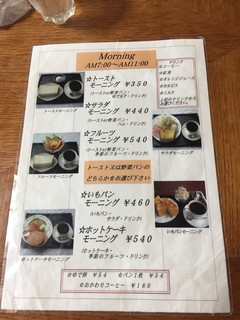 Morning
AM7:00～AM11:00
☆トースト
モーニング ￥350
(トーストor野菜パン・
ゆで玉子・ドリンク)
☆サラダ
モーニング ￥440
(トーストor野菜パン・
ハム・ドリンク)
☆フルーツ
モーニング ￥540
(トーストor野菜パン・
季節のフルーツ・ドリンク)
トースト又は野菜パンの
どちらかをお選び下さい
☆いもパン
モーニング ￥460
(いもパン・
サラダ・ドリンク)
☆ホットケーキ
モーニング ￥540
(ホットケーキ・
季節のフルーツ・ドリンク)
☆ゆで卵 ￥54 ☆パン1枚 ￥54
☆おかわりコーヒー ￥180
ドリンク
☆コーヒー
☆紅茶
☆オレンジジュース
☆カルピス
☆ミルク
トーストモーニング
サラダモーニング
フルーツモーニング
いもパンモーニング
ホットケーキモーニング